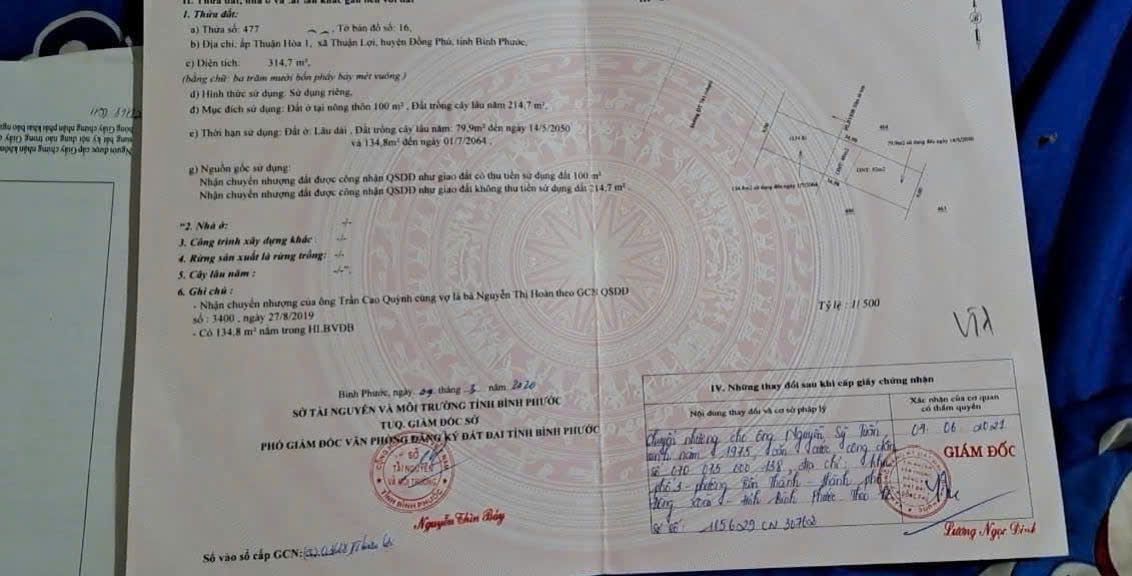 1. Thửa đất:
a) Thửa số: 477 , Tờ bản đồ số: 16,
b) Địa chỉ: ấp Thuận Hòa 1, xã Thuận Lợi, huyện Đồng Phú, tỉnh Bình Phước,
c) Diện tích: 314,7 m²,
(bằng chữ: ba trăm mười bốn phẩy bảy mét vuông )
d) Hình thức sử dụng: Sử dụng riêng,
đ) Mục đích sử dụng: Đất ở tại nông thôn 100 m² , Đất trồng cây lâu năm 214,7 m²,
e) Thời hạn sử dụng: Đất ở: Lâu dài , Đất trồng cây lâu năm: 79,9m² đến ngày 14/5/2050
và 134,8m² đến ngày 01/7/2064 .
g) Nguồn gốc sử dụng:
Nhận chuyển nhượng đất được công nhận QSDĐ như giao đất có thu tiền sử dụng đất 100 m²
Nhận chuyển nhượng đất được công nhận QSDĐ như giao đất không thu tiền sử dụng đất 214,7 m² .
"2. Nhà ở: -/-
3. Công trình xây dựng khác : -/-
4. Rừng sản xuất là rừng trồng: -/-
5. Cây lâu năm : -/-".
6. Ghi chú :
- Nhận chuyển nhượng của ông Trần Cao Quỳnh cùng vợ là bà Nguyễn Thị Hoàn theo GCN QSDĐ
số : 3400 , ngày 27/8/2019
- Có 134,8 m² nằm trong HLBVĐB
Bình Phước, ngày 09 tháng 3 năm 2020
SỞ TÀI NGUYÊN VÀ MÔI TRƯỜNG TỈNH BÌNH PHƯỚC
TUQ. GIÁM ĐỐC SỞ
PHÓ GIÁM ĐỐC VĂN PHÒNG ĐĂNG KÝ ĐẤT ĐAI TỈNH BÌNH PHƯỚC
SỞ
TÀI NGUYÊN
VÀ MÔI TRƯỜNG
TỈNH BÌNH PHƯỚC
Nguyễn Thìn Bảy
Số vào sổ cấp GCN:
464
461
Tỷ lệ : 1/ 500
IV. Những thay đổi sau khi cấp giấy chứng nhận
Nội dung thay đổi và cơ sở pháp lý
Xác nhận của cơ quan
có thẩm quyền
Chuyển nhượng cho ông Nguyễn Sỹ Tuân,
sinh năm 1975, căn cước công dân
số 070 075 000 138, địa chỉ: khu
phố 3 - phường Tân Thành - thành phố
Đồng Xoài - tỉnh Bình Phước. Theo
09. 06. 2021
GIÁM ĐỐC
Lương Ngọc Đính